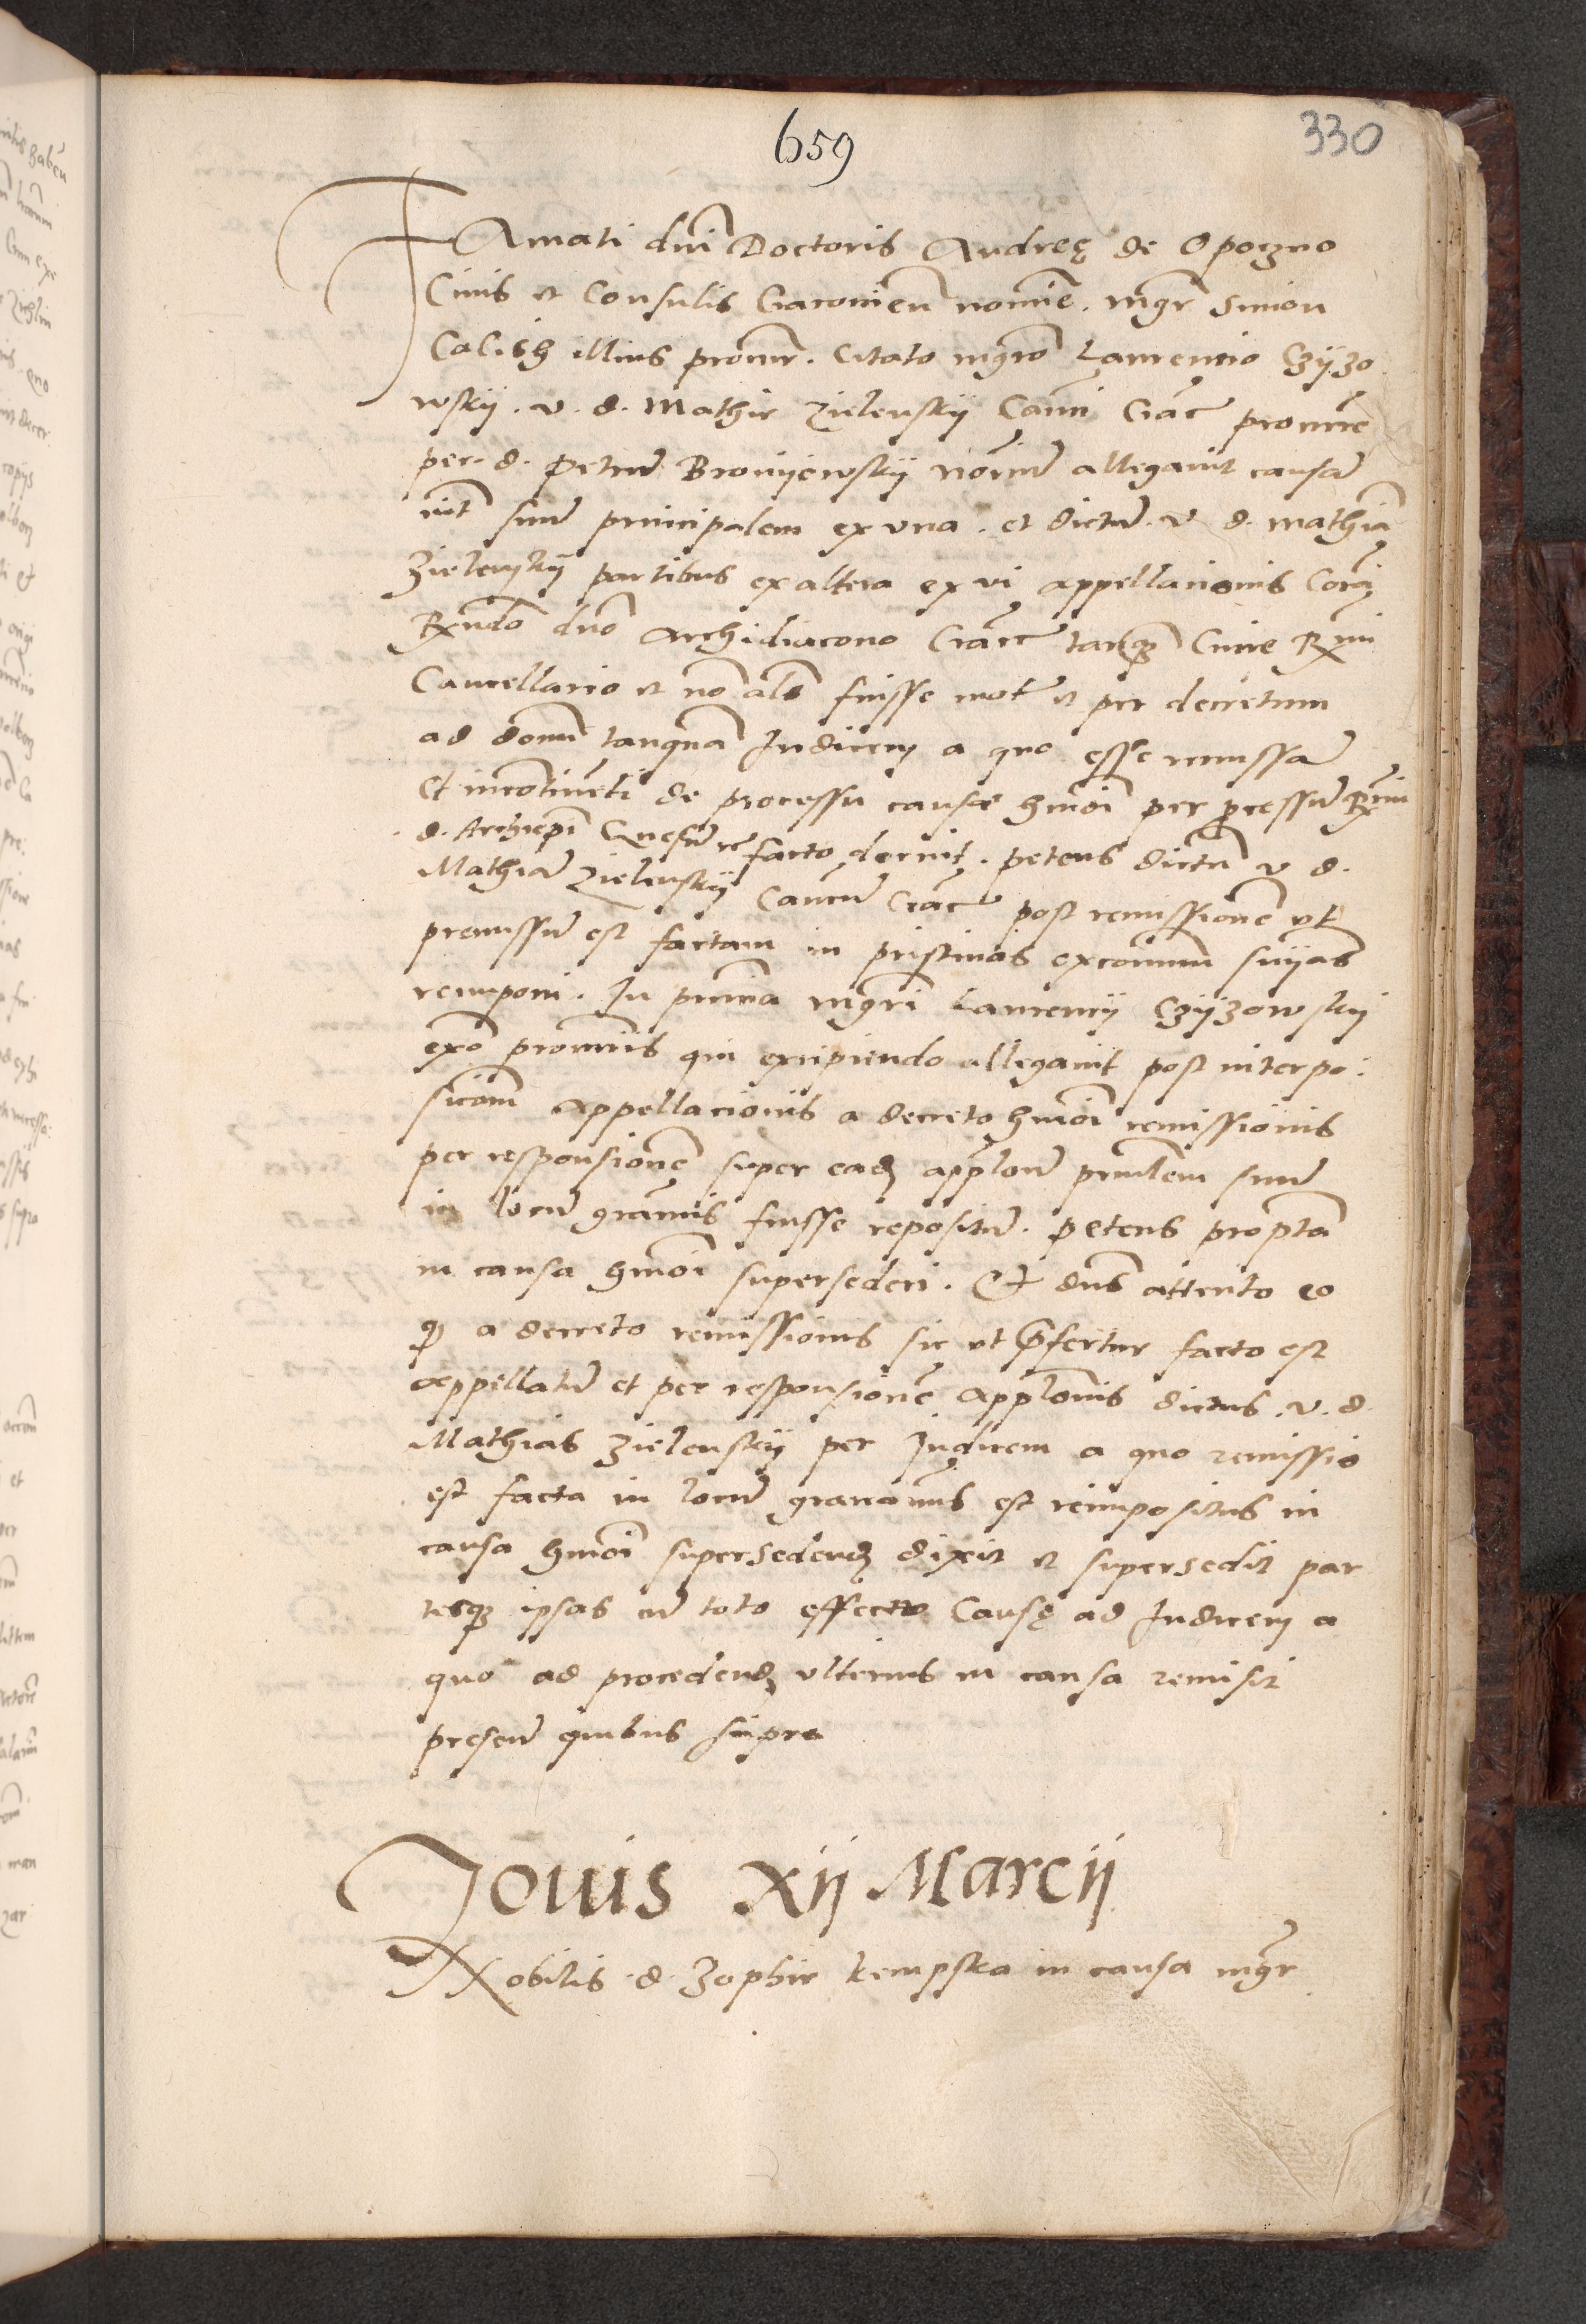 659
330
FAmati dni Doctoris Andreę de Opoczno
Ciuis et Consulis Cracouien nomine . mgr Simon
Calish illius procur . Citato mgro Laurencio Czyzo
wskÿ . v . d . Mathie Zielenskÿ Canci Crac procure
per . d . Petrum Bronÿewskÿ notariu allegauit causa
int suum principalem ex vna . et dictum . v d . Mathia
Zielenskÿ partibus ex altera ex vi appellacionis Cora
Rndo dno Archidiacono Crac tanq Curie Rmi
Cancellario et no als fuisse mot et per decretum
ad donu tanqua Iudicem a quo esse remissa
Et incontineti de processu cause hmoi per pcessum Rmi
d . Archiepi facto docuit . petens dictu v d .
Mathia Zielenskÿ Cancu Crac post remissione vt
premissu est factam in pristinas excomun suÿas
reimponi . In pncia mgri Laurencÿ Czÿzowskÿ
procuris qui excipiendo allegauit post interpo
sicom appellacionis a decreto hmoi remissionis
per responsione super eadz applone prncilem suum
in locum grauis fuisse repositum . petens propta
in causa hmoi supersederi . Et dns attento eo
q a decreto remissionis sic vt pfertur facto est
appellatu et per responsione applonis dictus . v . d .
Mathias Zielenskÿ per Iudicem a quo remissio
est facta in locum grauaminis est reimpositus in
causa hmoi supersedendz dixit et supersedit par
tesqz ipsas cu toto effectu Causę ad Iudicem a
quo ad procedendz vlterius in causa remisit
presen quibus supra
Iouis xij Marcij
Nobilis . d . Zophie kempska in causa mgr